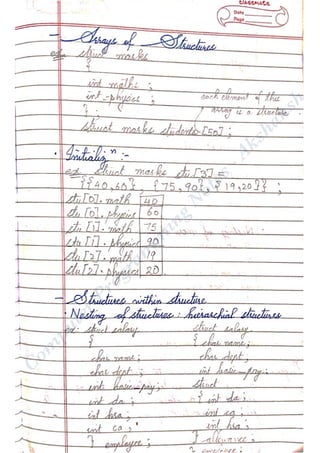 classmate
Date
Page
- Arrays of Structures
ex: struct marks
{
int math ;
int physics ;
} ;
each element of this
array is a structure
struct marks students [50] ;
• Initializⁿ :-
ex struct marks stu [3] =
{ {40,60} , {75,90} , {19,20} } ;
stu [0] . math 40
stu [0] . physics 60
stu [1] . math 75
stu [1] . physics 90
stu [2] . math 19
stu [2] . physics 20
- Structures within structure
• Nesting of structures : hierarchial structures
ex: struct salary
{
char name ;
char dept ;
int basic_pay ;
int da ;
int hra ;
int ca ;
} employee ;
struct salary
{ char name ;
char dept ;
int basic_pay ;
struct
{ int da ;
int ca ;
int hra ;
} allowance ;
} employee ;